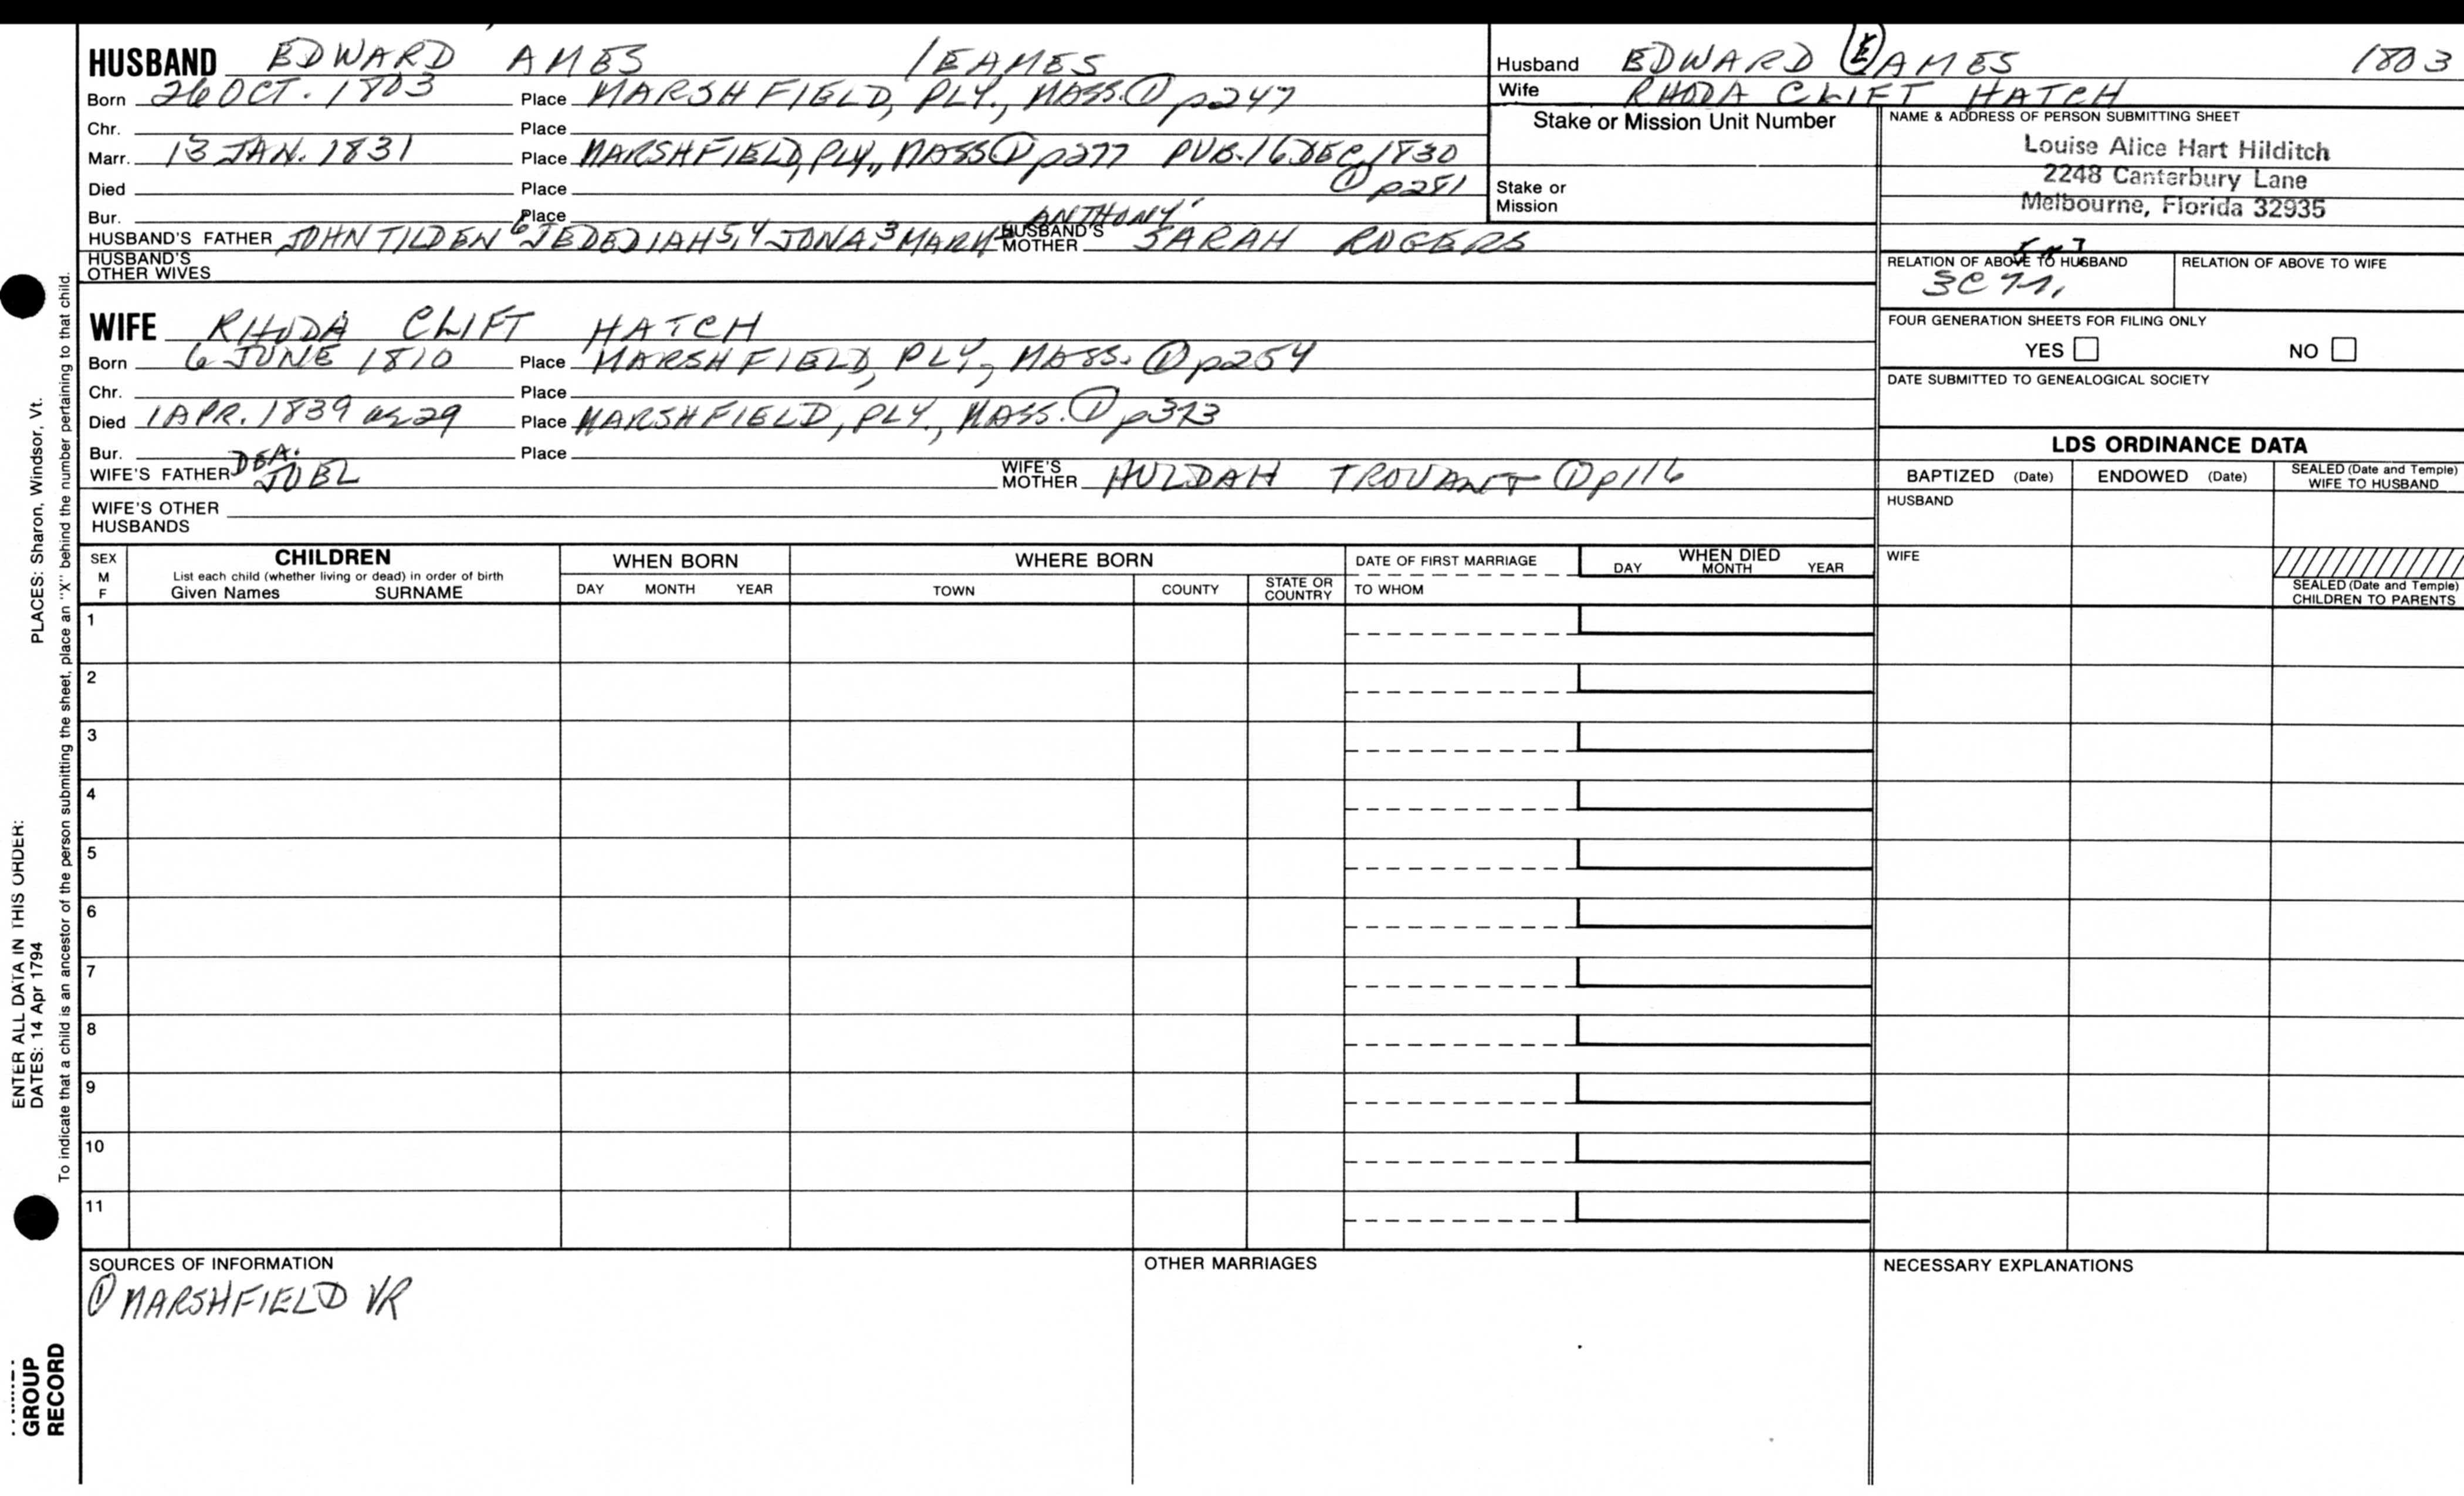 HUSBAND EDWARD AMES /EAMES
Born 26 OCT. 1803 Place MARSHFIELD, PLY., MASS. ① p247
Chr. Place
Marr. 13 JAN. 1831 Place MARSHFIELD, PLY., MASS ① p277 PUB. 16 DEC 1830
① p281
Died Place
Bur. Place
ANTHONY
HUSBAND'S FATHER JOHN TILDEN 6 JEDEDIAH 5,4 JONA. 3 MARK HUSBAND'S MOTHER SARAH ROGERS
HUSBAND'S OTHER WIVES
WIFE RHODA CLIFT HATCH
Born 6 JUNE 1810 Place MARSHFIELD, PLY., MASS. ① p254
Chr. Place
Died 1 APR. 1839 ae 29 Place MARSHFIELD, PLY., MASS. ① p373
Bur. Place
WIFE'S FATHER DEA. JOEL WIFE'S MOTHER HULDAH TROUANT ① p116
WIFE'S OTHER HUSBANDS
Husband EDWARD (E)AMES 1803
Wife RHODA CLIFT HATCH
Stake or Mission Unit Number
Stake or Mission
NAME & ADDRESS OF PERSON SUBMITTING SHEET
Louise Alice Hart Hilditch
2248 Canterbury Lane
Melbourne, Florida 32935
RELATION OF ABOVE TO HUSBAND RELATION OF ABOVE TO WIFE
FOUR GENERATION SHEETS FOR FILING ONLY
YES NO
DATE SUBMITTED TO GENEALOGICAL SOCIETY
LDS ORDINANCE DATA
BAPTIZED (Date) ENDOWED (Date) SEALED (Date and Temple) WIFE TO HUSBAND
HUSBAND
WIFE
SEALED (Date and Temple) CHILDREN TO PARENTS
SEX M F
CHILDREN
List each child (whether living or dead) in order of birth
Given Names SURNAME
WHEN BORN
DAY MONTH YEAR
WHERE BORN
TOWN COUNTY STATE OR COUNTRY
DATE OF FIRST MARRIAGE
TO WHOM
WHEN DIED
DAY MONTH YEAR
1
2
3
4
5
6
7
8
9
10
11
SOURCES OF INFORMATION
① MARSHFIELD VR
OTHER MARRIAGES
NECESSARY EXPLANATIONS
PLACES: Sharon, Windsor, Vt.
ENTER ALL DATA IN THIS ORDER:
DATES: 14 Apr 1794
To indicate that a child is an ancestor of the person submitting the sheet, place an "X" behind the number pertaining to that child.
GROUP
RECORD